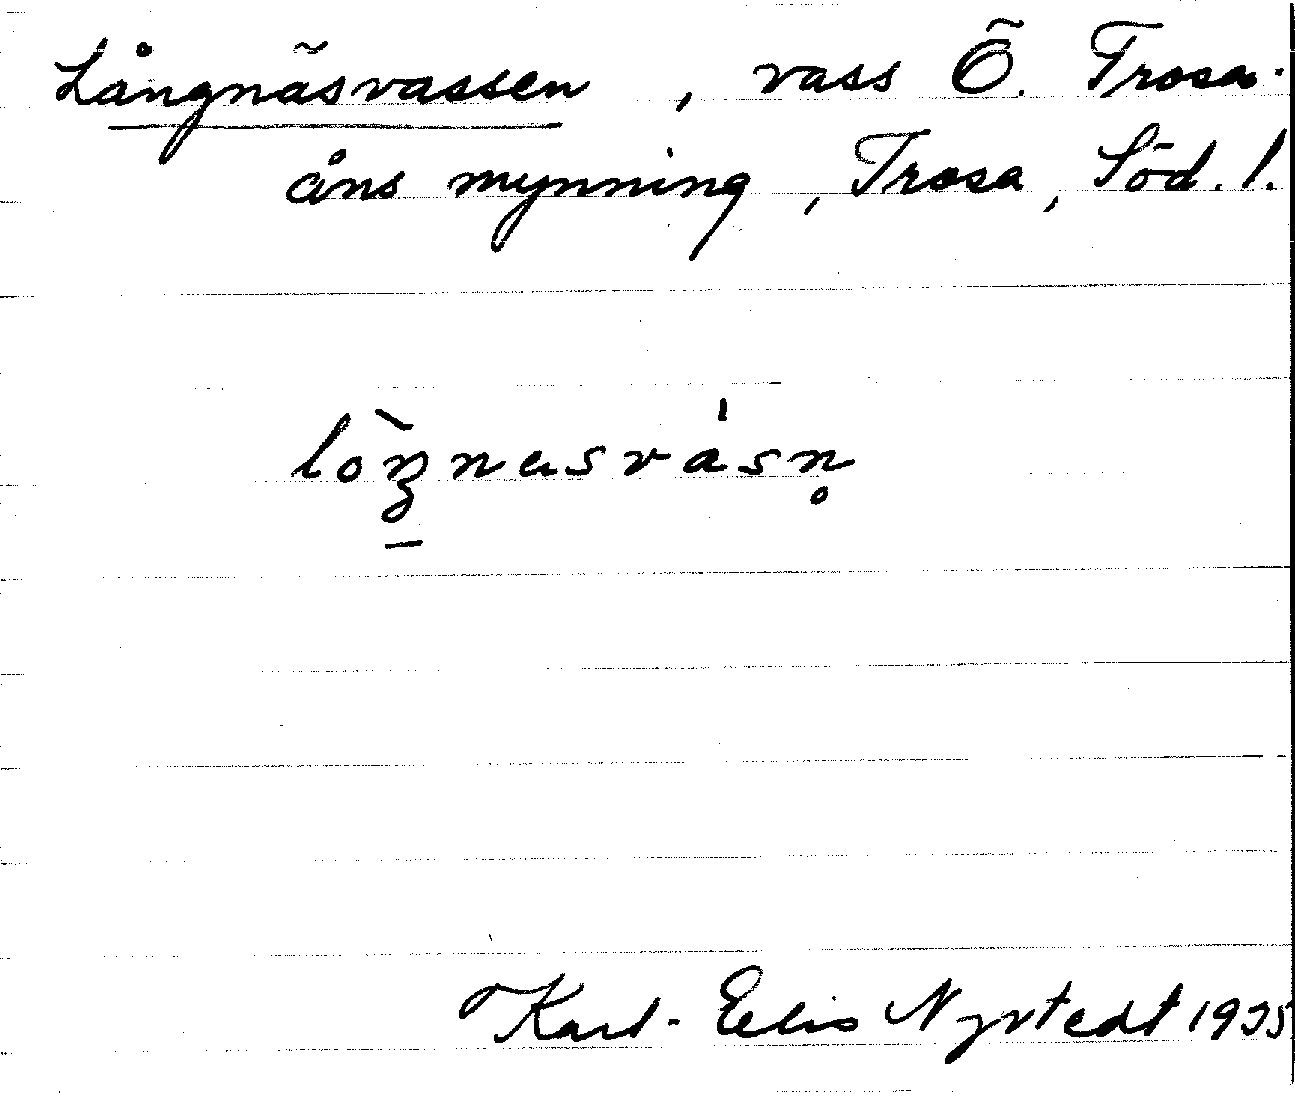 Långnäsvassen, vass Ö. Trosa-
åns mynning, Trosa, Söd. l.
lòŋnasvásn̥
Karl-Elis Nystedt 1935